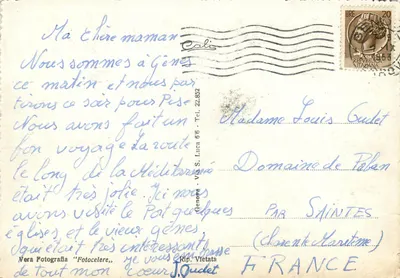 Ma chère maman
Nous sommes à Gênes
ce matin et nous par
tirons ce soir pour Pise
Nous avons fait un
bon voyage la route
le long de la Méditerranée
était très jolie. Ici nous
avons visité le Port quelques
églises et le vieux gênes
qui était très intéressant
je vous embrasse
de tout mon coeur J. Oudet
Vera Fotografia "Fotocelere..
Rip. Vietata
Genova - Via S. Luca 6/6 - Tel. 22.852
Madame Louis Oudet
Domaine de
PAR SAINTES
(Charente Maritime)
FRANCE